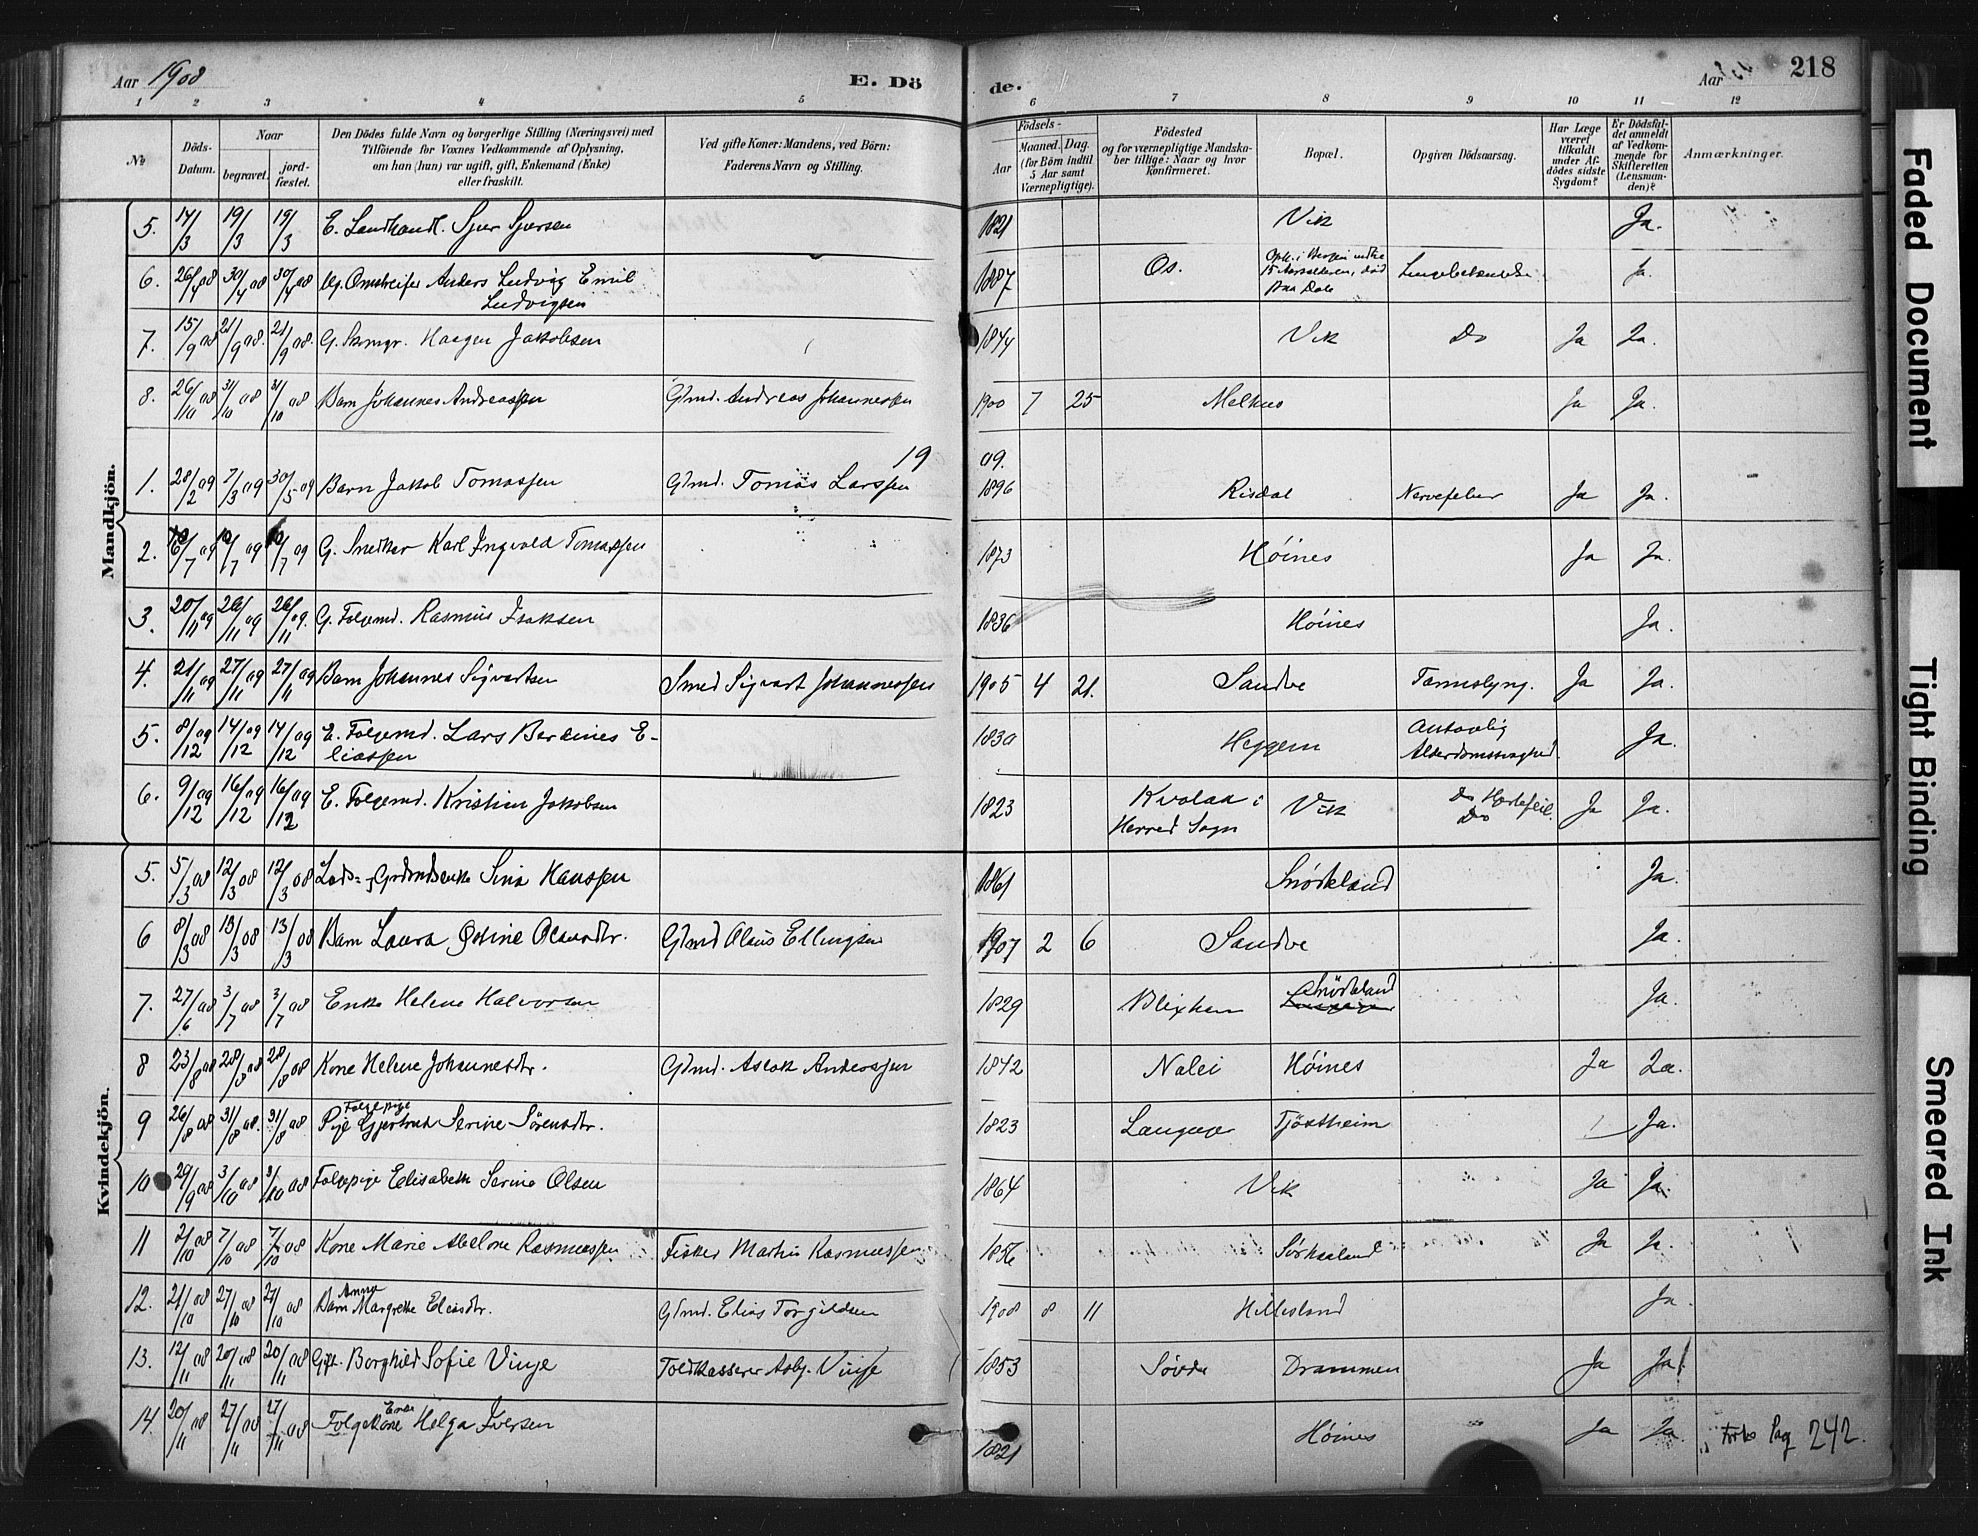 Aar 1908
E. Dö
de.
Aar
218
1 2 3 4 5 6 7 8 9 10 11 12
№
Döds-
Datum.
Naar
begravet.
jord-
fæstet.
Den Dödes fulde Navn og borgerlige Stilling (Næringsvei) med
Tilföiende for Voxnes Vedkommende af Oplysning,
om han (hun) var ugift, gift, Enkemand (Enke)
eller fraskilt.
Ved gifte Koner: Mandens, ved Börn:
Faderens Navn og Stilling.
Födsels-
Aar
Maaned. Dag.
(for Börn indtil
5 Aar samt
Værnepligtige).
Födested
og for værnepligtige Mandska-
ber tillige: Naar og hvor
konfirmeret.
Bopæl.
Opgiven Dödsaarsag.
Har Læge
været
tilkaldt
under Af-
dödes sidste
Sygdom?
Er Dödsfal-
det anmeldt
af Vedkom-
mende for
Skifteretten
(Lensman-
den)?
Anmærkninger.
Mandkjön.
5. 14/3 19/3 19/3 E. Landhandl. Sjur Sjursen 1821 Vik Ja.
6. 26/4 08 30/4 08 30/4 08 Ug. Omstreifer Anders Ludvig Emil
Ludvigsen 1887 Os. Ja.
7. 15/9 08 21/9 08. 21/9 08. G. Haagen Jakobsen 1844 Vik Do Ja Ja.
8. 26/10 08 31/10 08 31/10 08 Barn Johannes Andreassen Gbmd. Andreas Johannessen 1900 7 25 Melhus Ja Ja.
19 09.
1. 28/2 09 7/3 09 30/5 09 Barn Jakob Tomassen Gbmd. Tomas Larssen 1896 Risdal Nervefeber Ja Ja.
2. 6/7 09 10/7 09 10/7 09 G. Snedker Karl Ingvald Tomassen 1873 Høines Ja Ja.
3. 20/11 09 26/11 09 26/11 09. G. Folgemd. Rasmus Isaksen 1836 Høines Ja.
4. 21/11 09 27/11 09 27/11 09 Barn Johannes Sigvartsen Smed Sigvart Johannessen 1905 4 21. Sandve Ja Ja.
5. 8/12 09 14/12 09 14/12 09 E. Folgemd. Lars Berdines E-
liassen 1830 Heggem Antagelig
Alderdomssvaghed. Ja.
6. 9/12 09 16/12 09 16/12 09 E. Folgemd. Kristian Jakobsen 1823 Vik Do Hjertefeil.
Do Ja Ja.
Kvindekjön.
5. 5/3 08 12/3 08 12/3 08 Sina Hanssen 1861 Ja.
6 8/3 08 13/3 08 13/3 08 Barn Laura Østine Olausdtr. Gbmd Olaus Ellingsen 1907 2 6 Sandve Ja.
7. 27/6 08 3/7 08 3/7 08 Enke Helene Halvorsen 1829 Blixhavn Ja.
8 23/8 08 28/8 08 28/8 08 Kone Helene Johannesdtr. Gbmd. Aslak Anderssen 1842 Nalei Høines Ja Ja.
9 26/8 08 31/8 08. 31/8 08 Pige Folgepige Gjertrud Serine Sørensdtr. 1823 Langage Tjøstheim Ja.
10 29/9 08 3/10 08 3/10 08 Folgepige Elisabeth Serine Olsen 1864 Vik Ja Ja.
11 2/10 08 7/10 08 7/10 08 Kone Marie Abelone Rasmussen Fisker Martin Rasmussen 1856 Ja Ja.
12. 21/10 08 27/10 08 27/10 08 Barn Anna Margrethe Eliasdtr. Gbmd. Elias Torgildsen 1908 8 11 Hillesland Ja.
13. 12/11 08 20/11 08 20/11 08 Gift. Borghild Sofie Vinje Toldkasserer Asbj. Vinje 1853 Søvde Drammen Ja Ja
14. 20/11 08 27/11 08 27/11 08 Folgekone Helga Iversen 1821 Høines Ja Ja Pag 242.
Faded Document
Tight Binding
Smeared Ink